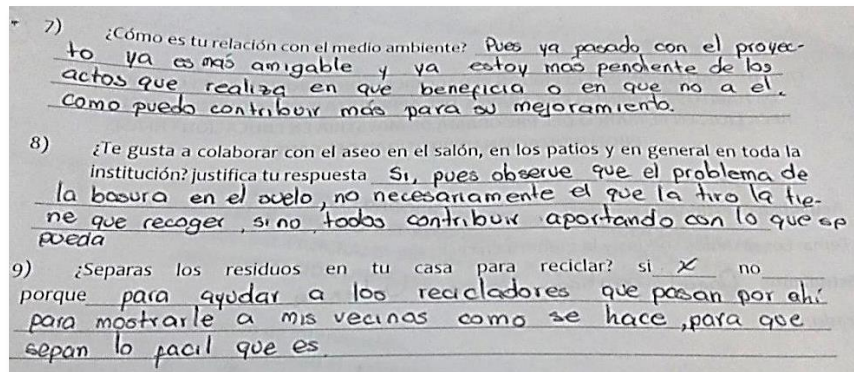 7) ¿Cómo es tu relación con el medio ambiente? Pues ya pasado con el proyec-
to ya es mas amigable y ya estoy mas pendiente de los
actos que realiza en que beneficia o en que no a el.
Como puedo contribuir mas para su mejoramiento.
8) ¿Te gusta a colaborar con el aseo en el salón, en los patios y en general en toda la
institución? justifica tu respuesta Si, pues observe que el problema de
la basura en el suelo, no necesariamente el que la tiro la tie-
ne que recoger, si no todos contribuir aportando con lo que se
pueda
9) ¿Separas los residuos en tu casa para reciclar? si X no
porque para ayudar a los recicladores que pasan por ahí
para mostrarle a mis vecinos como se hace, para que
sepan lo facil que es.